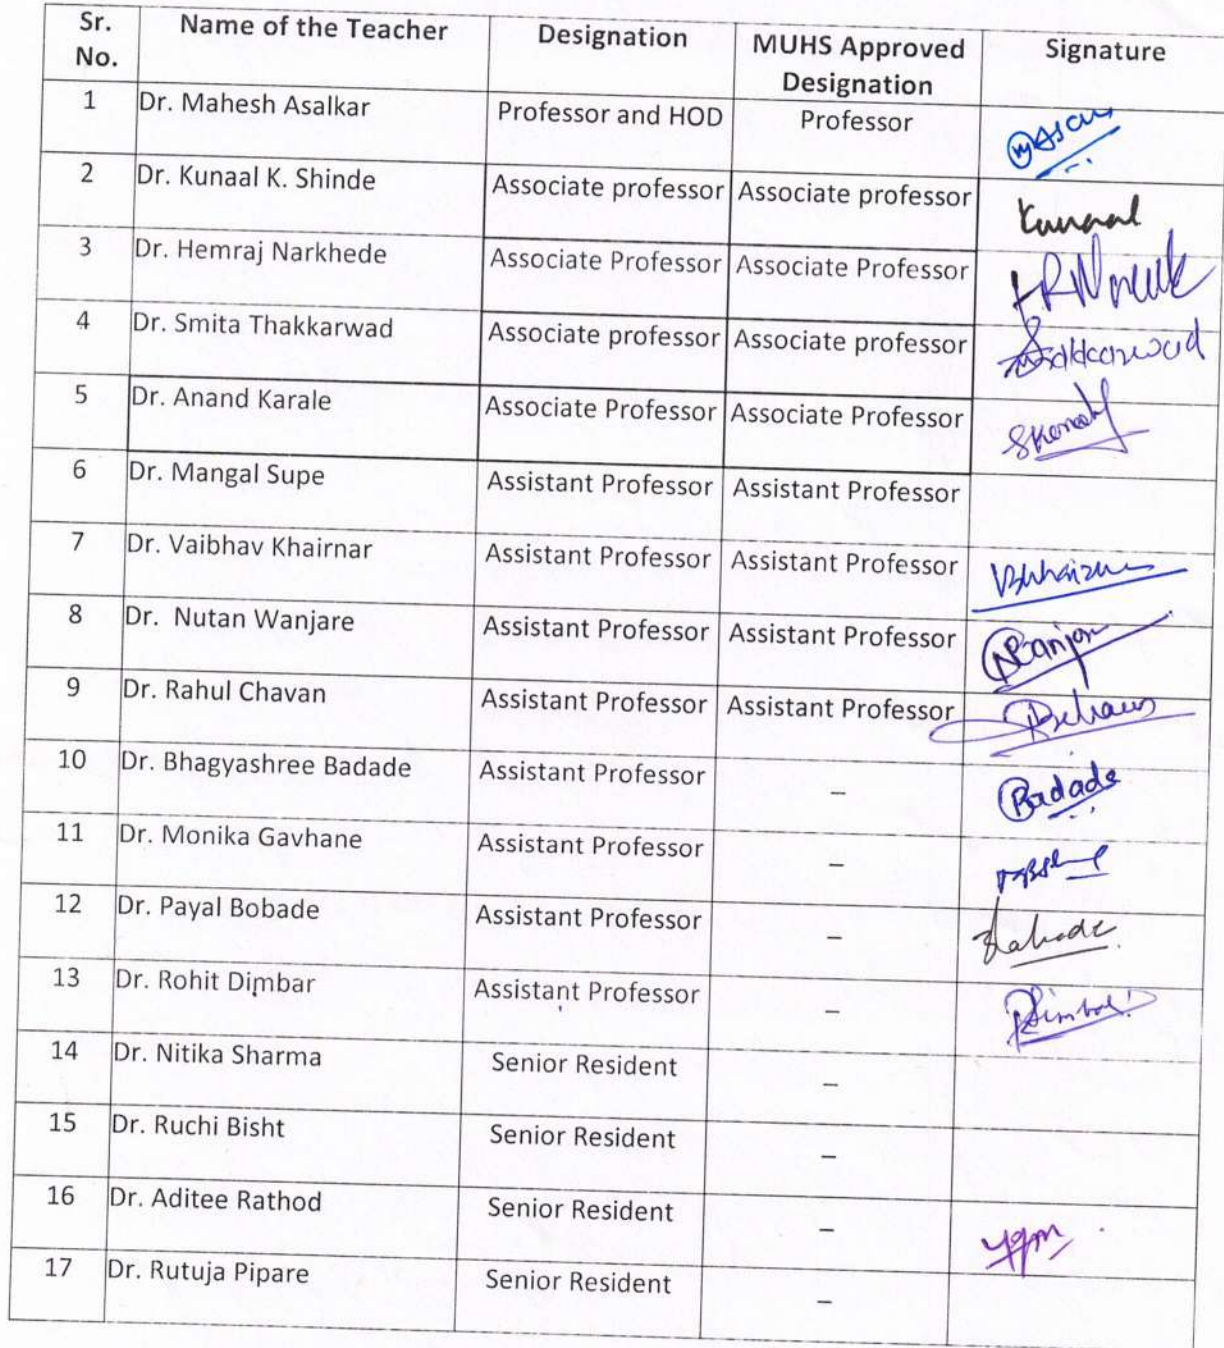 Sr. No. Name of the Teacher Designation MUHS Approved Designation Signature
1 Dr. Mahesh Asalkar Professor and HOD Professor
2 Dr. Kunaal K. Shinde Associate professor Associate professor Kunaal
3 Dr. Hemraj Narkhede Associate Professor Associate Professor
4 Dr. Smita Thakkarwad Associate professor Associate professor
5 Dr. Anand Karale Associate Professor Associate Professor
6 Dr. Mangal Supe Assistant Professor Assistant Professor
7 Dr. Vaibhav Khairnar Assistant Professor Assistant Professor
8 Dr. Nutan Wanjare Assistant Professor Assistant Professor
9 Dr. Rahul Chavan Assistant Professor Assistant Professor
10 Dr. Bhagyashree Badade Assistant Professor – Badade
11 Dr. Monika Gavhane Assistant Professor –
12 Dr. Payal Bobade Assistant Professor –
13 Dr. Rohit Dimbar Assistant Professor –
14 Dr. Nitika Sharma Senior Resident –
15 Dr. Ruchi Bisht Senior Resident –
16 Dr. Aditee Rathod Senior Resident –
17 Dr. Rutuja Pipare Senior Resident –